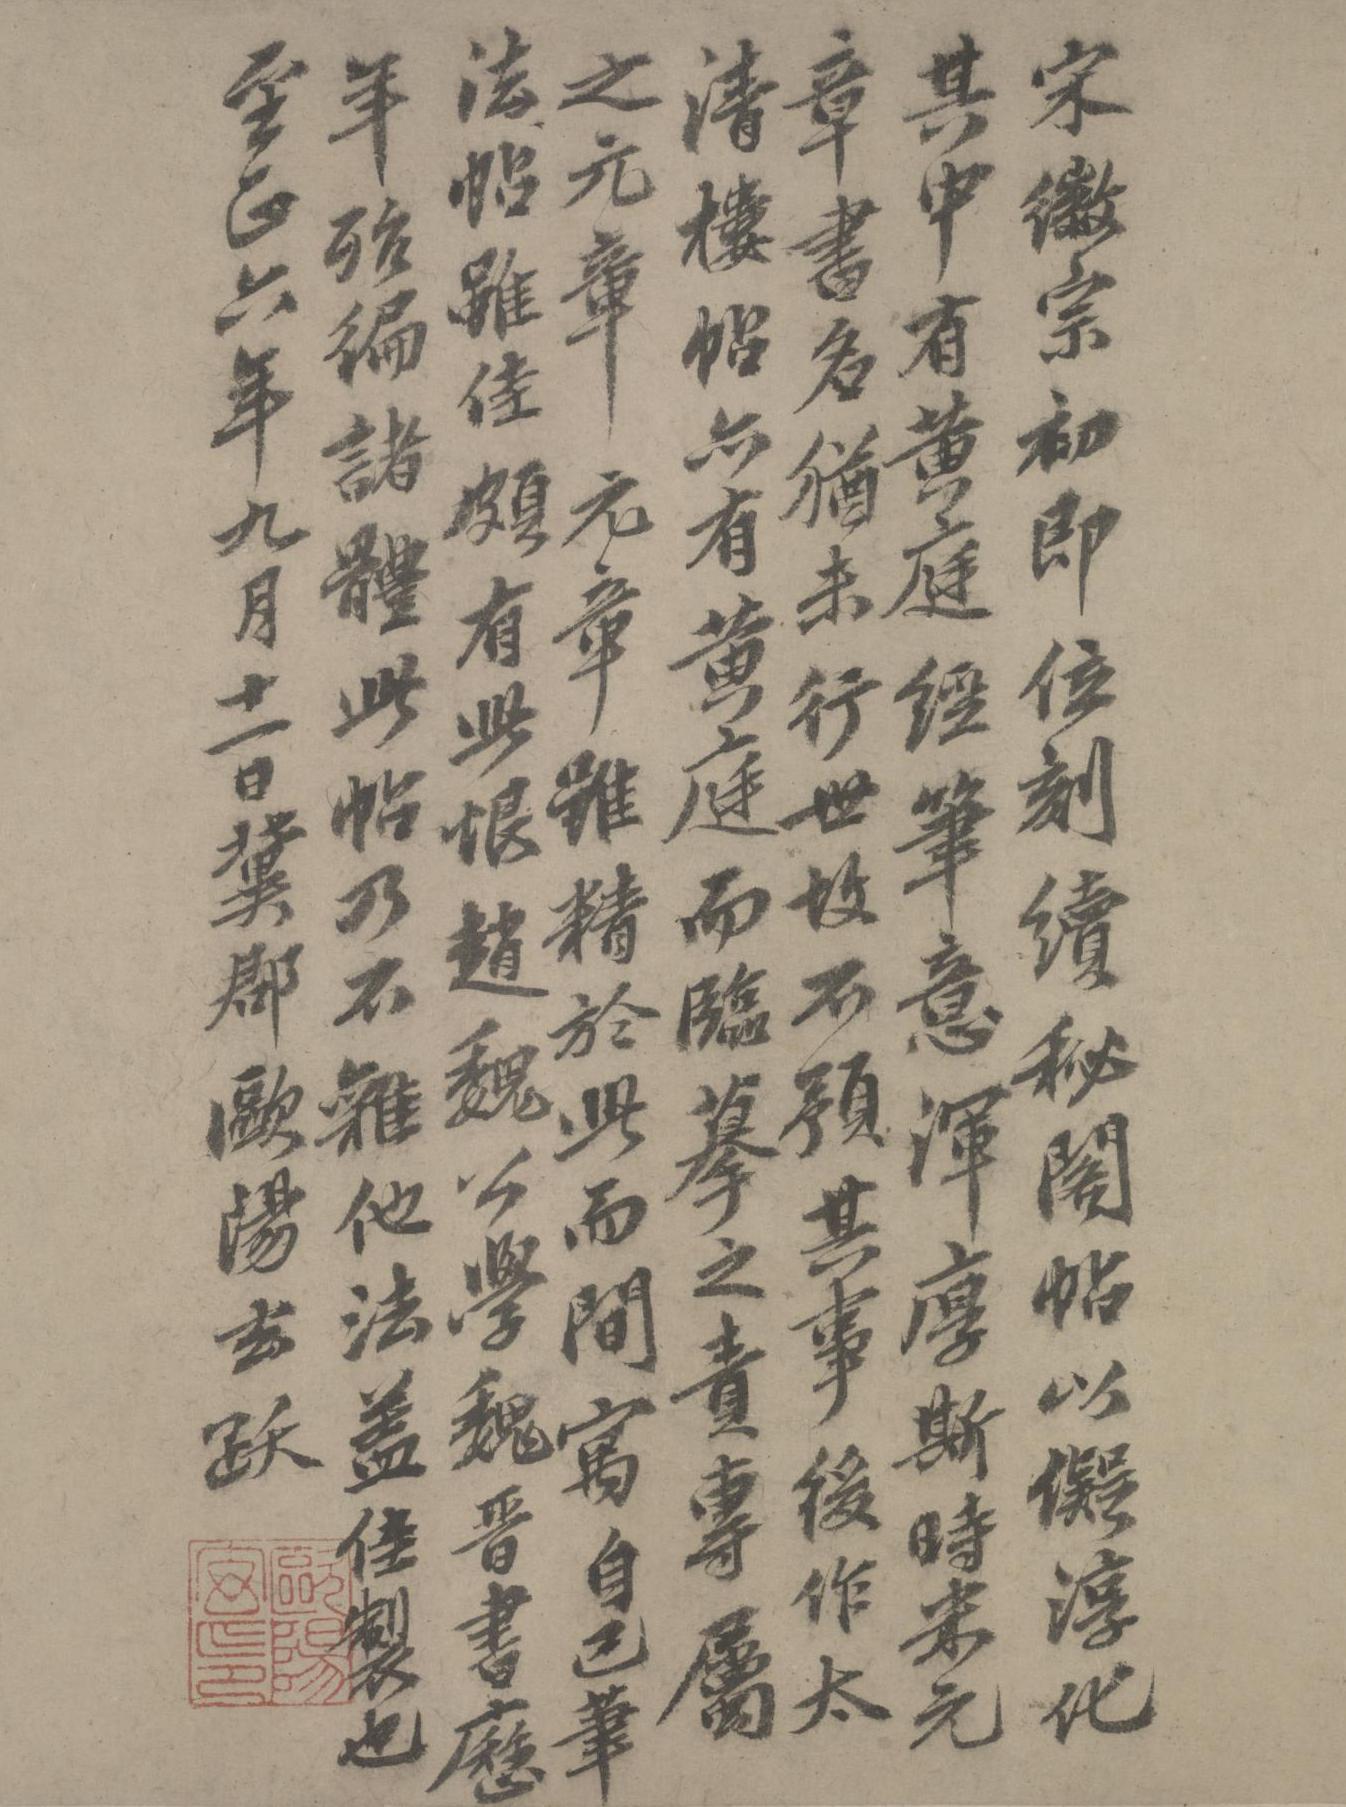 宋徽宗初即位刻續秘閣帖以儗淳化
其中有黄庭經筆意渾厚斯時米元
章書名猶未行世故不預其事後作太
清樓帖亦有黄庭而臨摹之責專屬
之元章元章雖精於此而間寓自己筆
法帖雖佳頗有此恨趙魏公學魏晋書歷
年殆徧諸體此帖乃不雜他法盖佳製也
至正六年九月十一日冀郡歐陽玄跋
歐陽